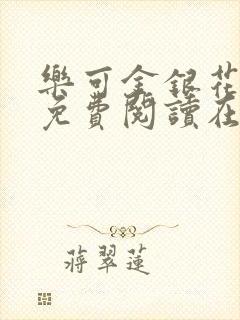 樂可金銀花
免費閱讀在
蔣翠蓮